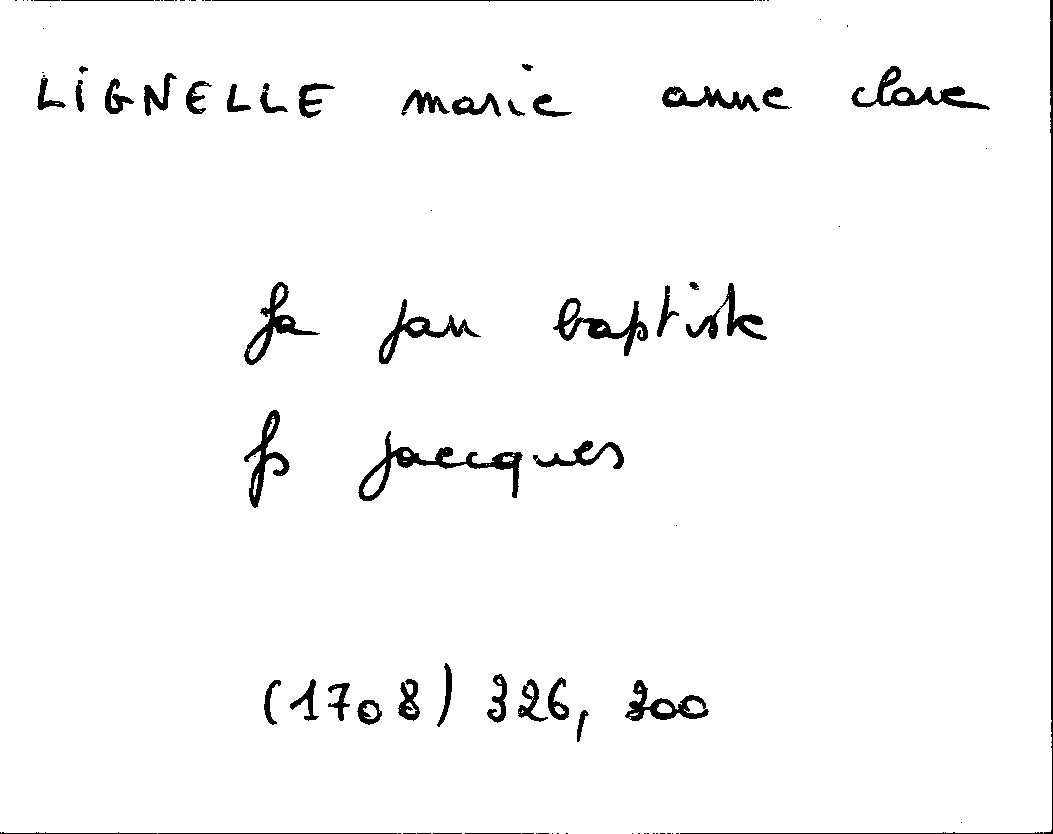 LIGNELLE marie anne clare
fa jan baptiste
fs jaccques
(1708) 326, 300